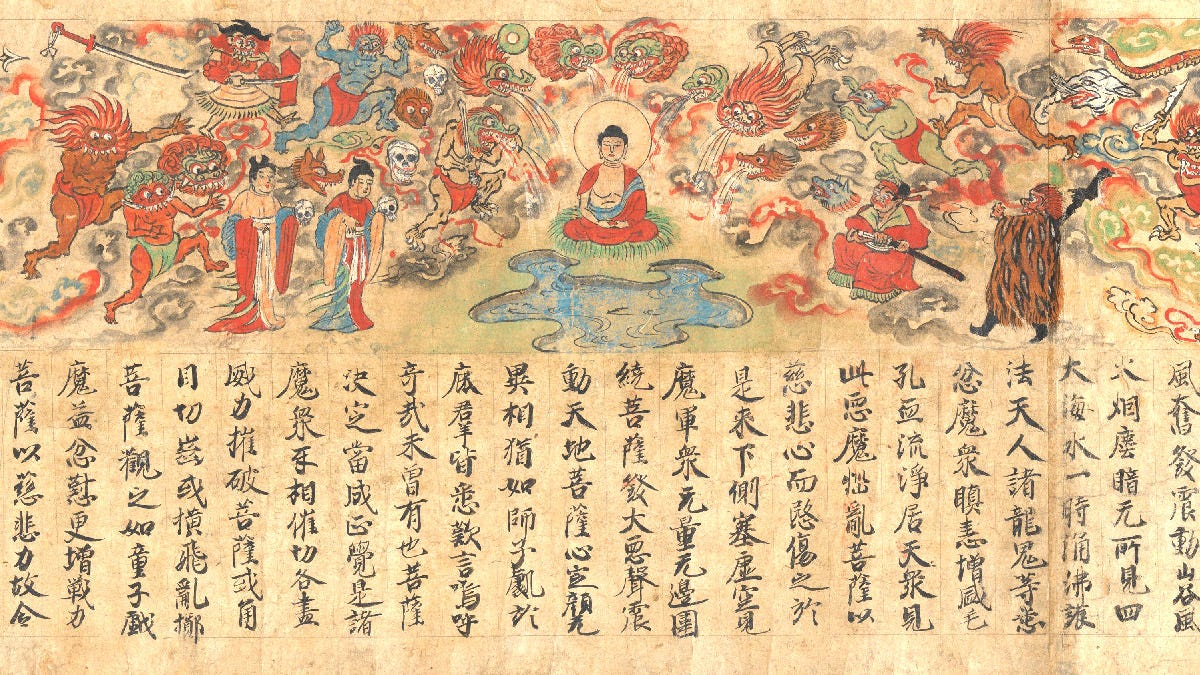 風奮發震動山谷風
火烟塵暗无所見四
大海水一時涌沸護
法天人諸龍鬼等悉
忿魔衆瞋恚增盛毛
孔血流淨居天衆見
此惡魔惱亂菩薩以
慈悲心而愍傷之於
是來下側塞虛空見
魔軍衆无量无邊圍
繞菩薩發大惡聲震
動天地菩薩心定顏无
異相猶如師子處於
鹿群皆悉歎言嗚呼
奇哉未曾有也菩薩
決定當成正覺是諸
魔衆互相催切各盡
威力摧破菩薩或角
目切齒或橫飛亂擲
菩薩觀之如童子戲
魔益忿懟更增戰力
菩薩以慈悲力故令